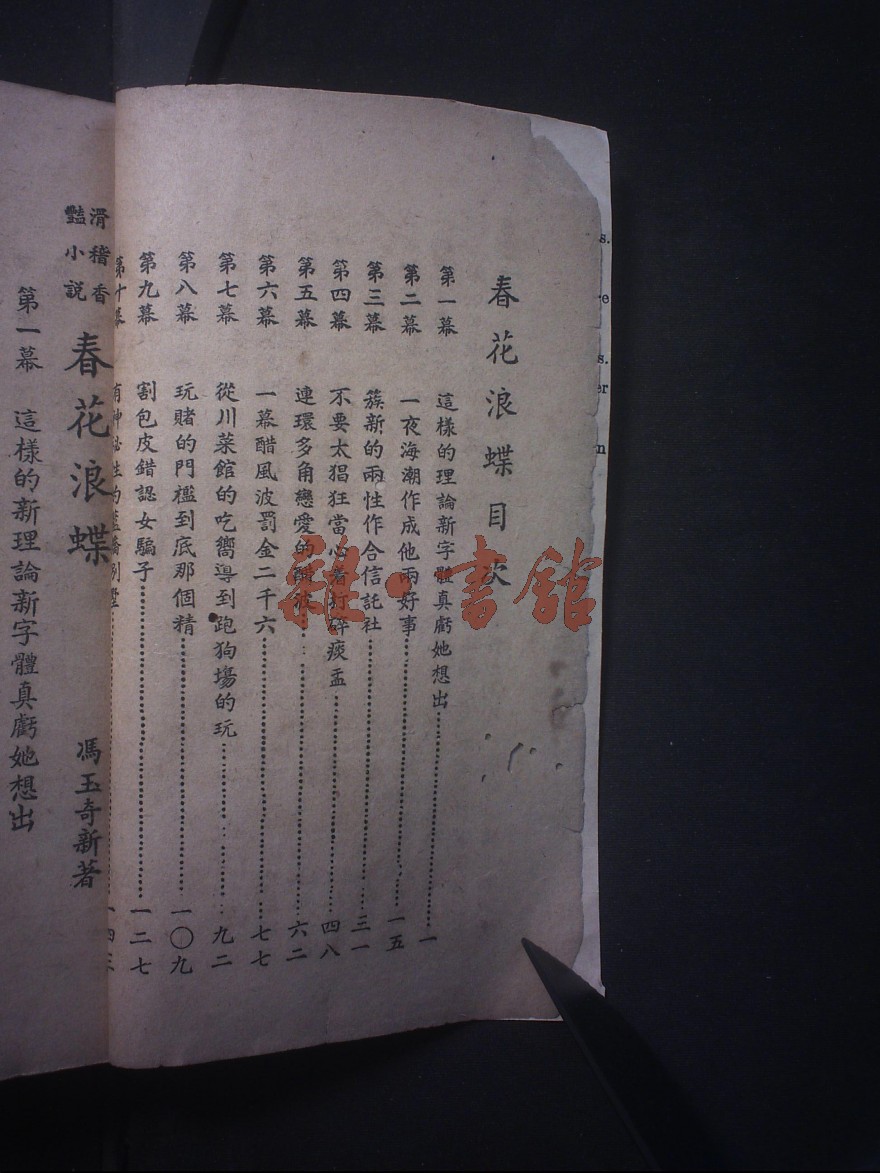 春花浪蝶目次
第一幕 這樣的理論新字體真虧她想出 一
第二幕 一夜海潮作成他兩好事 一五
第三幕 簇新的兩性作合信託社 三一
第四幕 不要太猖狂當心着打碎痰盂 四八
第五幕 連環多角戀愛的醋波 六二
第六幕 一幕醋風波罰金二千六 七七
第七幕 從川菜館的吃嚮導到跑狗場的玩 九二
第八幕 玩賭的門檻到底那個精 一〇九
第九幕 割包皮錯認女騙子 一二七
第十幕 有神秘性的 一四三
滑稽香
豔小說 春花浪蝶 馮玉奇新著
第一幕 這樣的新理論新字體真虧她想出
雜·書館
s.
re
s.
er
n